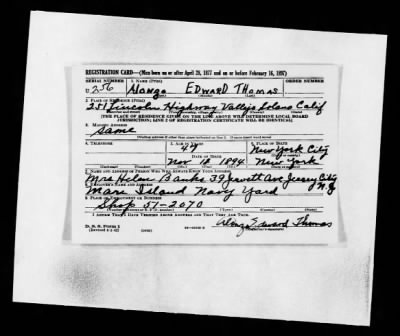 REGISTRATION CARD—(Men born on or after April 28, 1877 and on or before February 16, 1897)
SERIAL NUMBER 1. NAME (Print) ORDER NUMBER
U 256 Alonza EDWARD THOMAS
2. PLACE OF RESIDENCE (Print)
251 Lincoln Highway Vallejo Solano Calif
[THE PLACE OF RESIDENCE GIVEN ON THE LINE ABOVE WILL DETERMINE LOCAL BOARD
JURISDICTION; LINE 2 OF REGISTRATION CERTIFICATE WILL BE IDENTICAL]
3. MAILING ADDRESS
Same
4. TELEPHONE 5. AGE IN YEARS 6. PLACE OF BIRTH
47 New York City
DATE OF BIRTH
Nov 18 1894 New York
7. NAME AND ADDRESS OF PERSON WHO WILL ALWAYS KNOW YOUR ADDRESS
Mrs Helen Banks 39 Jewett Ave Jersey City N.J.
8. EMPLOYER'S NAME AND ADDRESS
Mare Island Navy Yard
9. PLACE OF EMPLOYMENT OR BUSINESS
Shop 17-2070
I AFFIRM THAT I HAVE VERIFIED ABOVE ANSWERS AND THAT THEY ARE TRUE.
D. S. S. Form 1
Alonza Edward Thomas